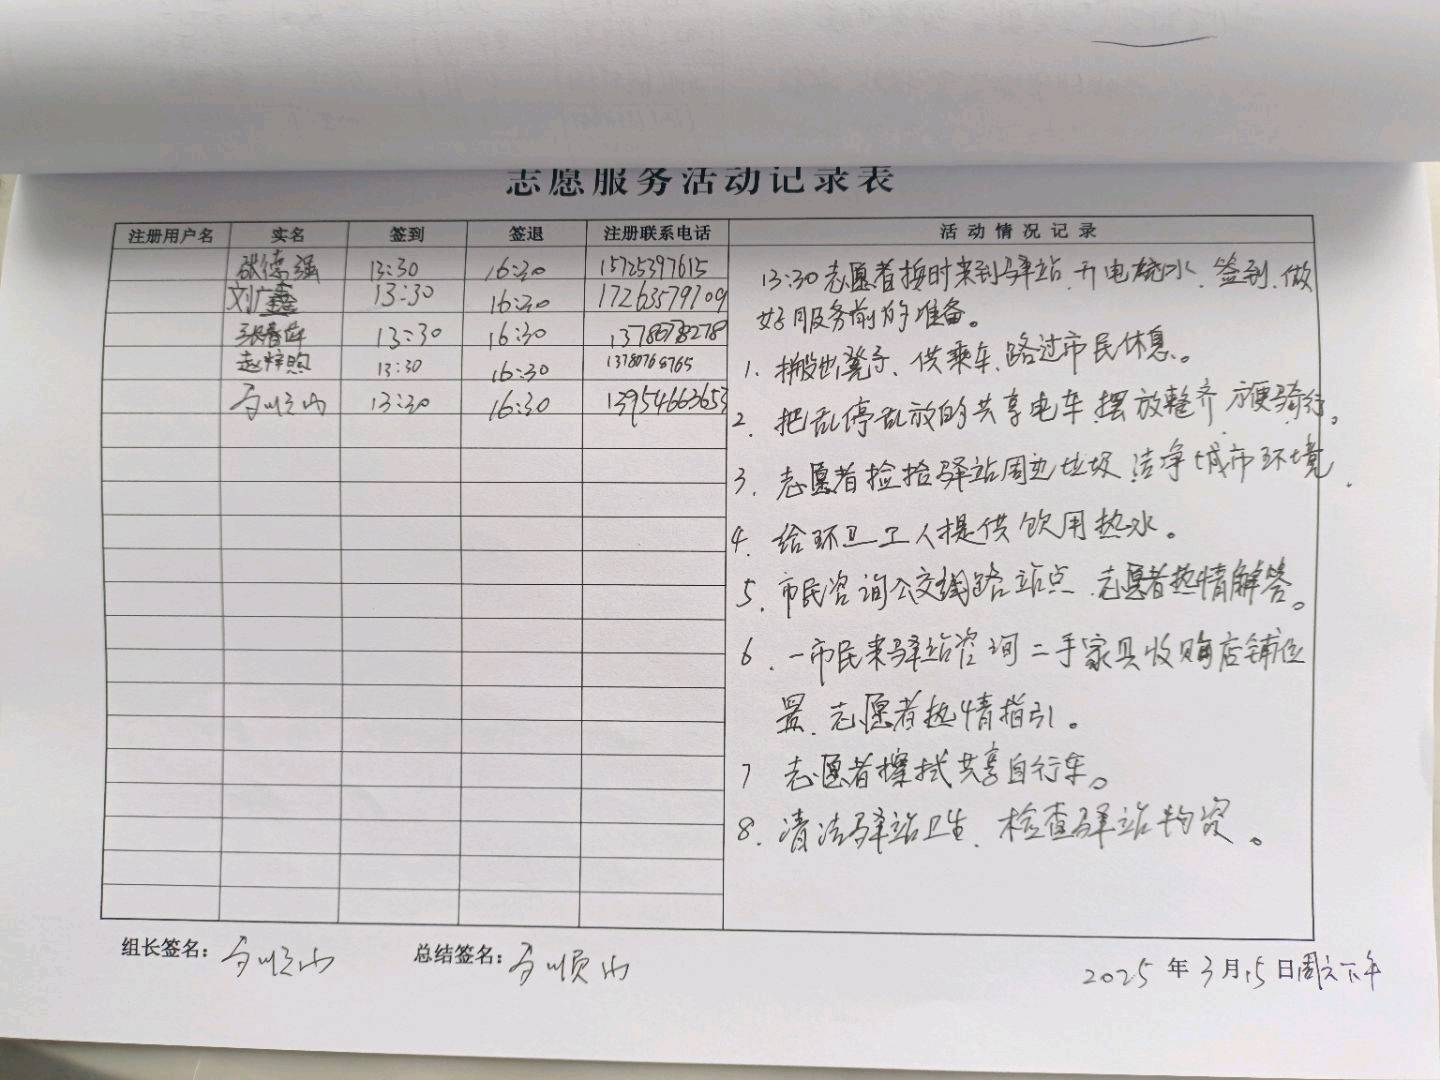 志愿服务活动记录表
注册用户名 实名 签到 签退 注册联系电话 活动情况记录
张德强 13:30 16:30 15725397615
刘广鑫 13:30 16:30 17263579709
13:30 16:30 13780
13:30 16:30 13780768765
13:30 16:30 13954663653
13:30志愿者按时来到驿站、开电烧水、签到、做
好服务前的准备。
1、搬出凳子、供乘车、路过市民休息。
2、把乱停乱放的共享电车摆放整齐方便骑行。
3、志愿者捡拾驿站周边垃圾、洁净城市环境.
4、给环卫工人提供饮用热水。
5、市民咨询公交线路站点、志愿者热情解答。
6、一市民来驿站咨询二手家具收购店铺位
置、志愿者热情指引。
7 志愿者擦拭共享自行车。
8、清洁驿站卫生、检查驿站物资。
组长签名: 总结签名:
2025年3月15日周六下午